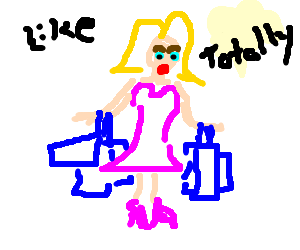 Like
Totally